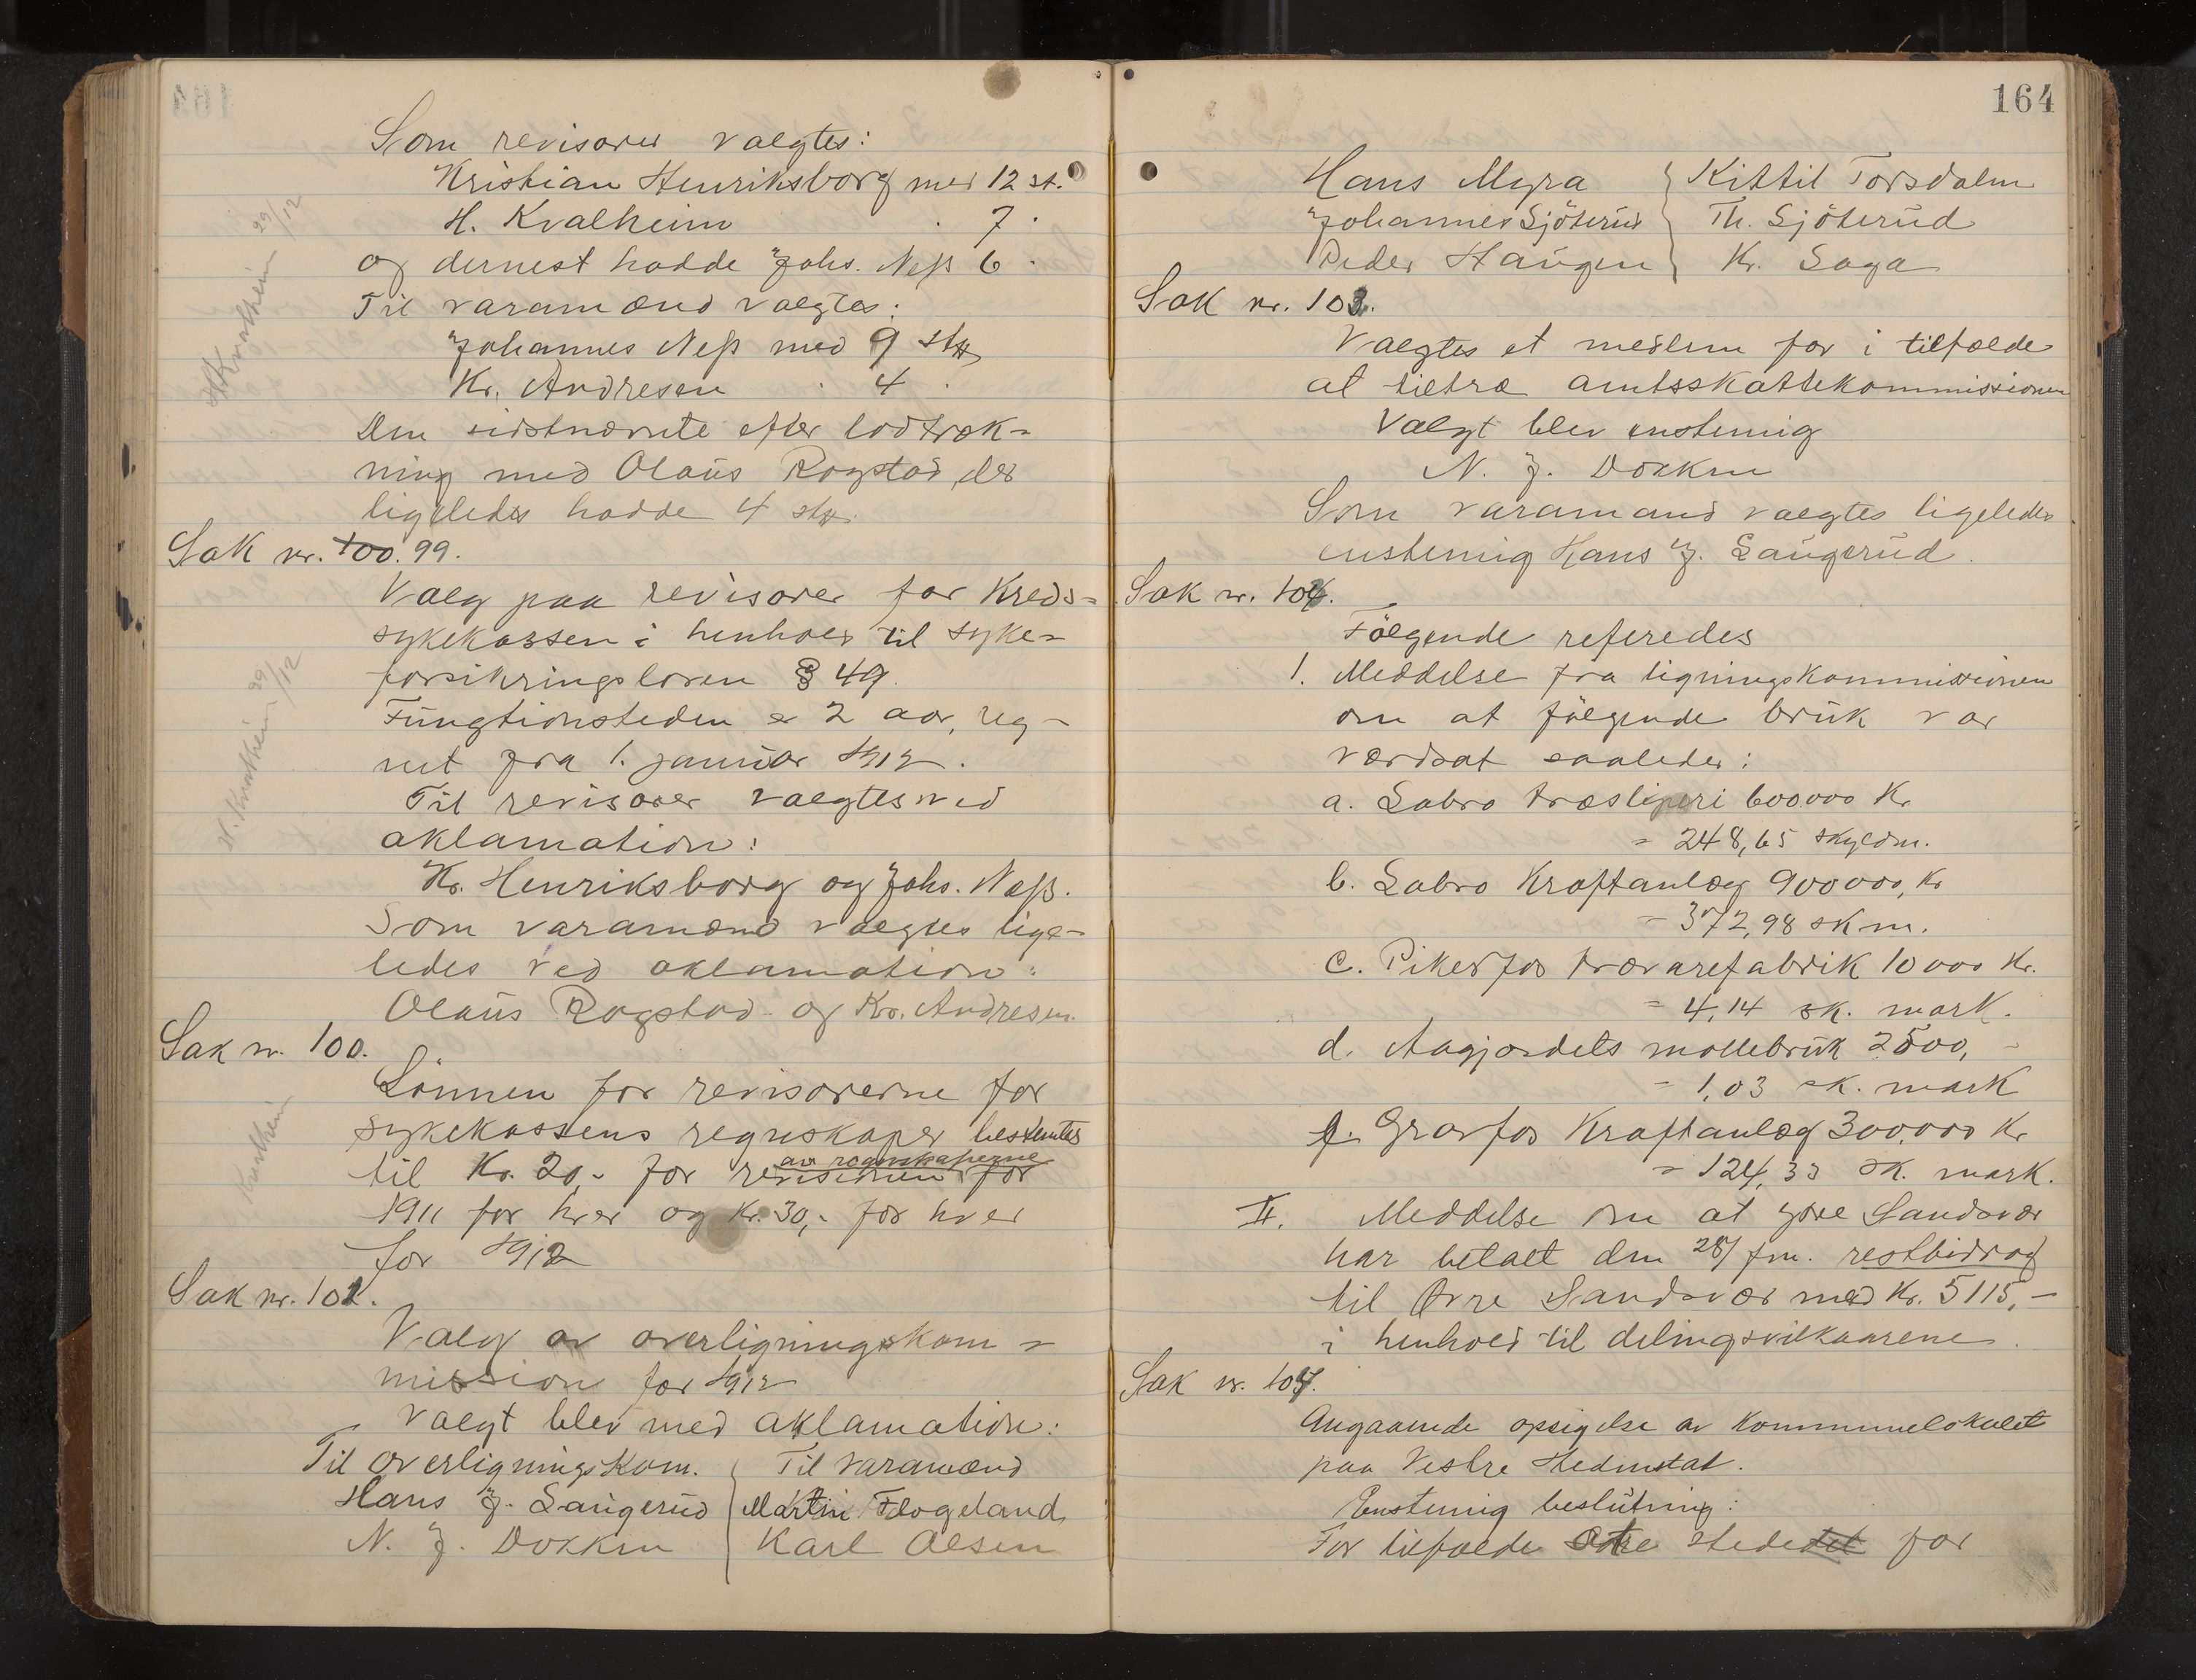 Som revisorer valgtes:
Kristian Henriksborg med 12 st.
H. Kvalheim . 7 .
og dernest hadde Johs. Neß 6 .
Til varamænd valgtes:
Johannes Neß med 9 st.
Kr. Andresen . 4 .
Den sidstnævnte efter lodtræk-
ning med Olaus Rogstad, der
ligeledes hadde 4 st.
Sak nr. 100. 99.
Valg paa revisorer for Kreds-
sykekassen i henhold til syke-
forsikringsloven § 49.
Fungtionstiden er 2 aar, reg-
net fra 1. januar 1912.
Til revisorer valgtes ved
aklamation:
Kr. Henriksborg og Johs. Neß.
Som varamænd valgtes lige-
ledes ved aklamation:
Olaus Rogstad og Kr. Andresen.
Sak nr. 100.
Lönnen for revisorerne for
sykekassens regnskaper bestemtes
av regnskaperne
til Kr. 20,- for revisionen for
1911 for hver og Kr. 30,- for hver
for 1912
Sak nr. 101.
Valg av overligningskom-
mission for 1912
Valgt blev med aklamation:
Til overligningskom. Til varamænd
Hans J. Laugerud Martin Flogeland
N. J. Dokken Karl Olsen
H. Kvalheim 29/12
H. Kvalheim 29/12
Kvalheim
164
Hans Myra Kittil Torsdalen
Johannes Sjöterud Th. Sjöterud
Peder Haugen Kr. Saga
Sak nr. 102.
Valgtes et medlem for i tilfælde
at tiltræ amtsskattekommissionen
Valgt blev enstemig
N. J. Dokken
Som varamand valgtes ligeledes
enstemig Hans J. Laugerud.
Sak nr. 103.
Fölgende refereredes
1. Meddelse fra ligningskommissionen
om at fölgende bruk var
værdsat saaledes:
a. Labro træsliperi 600.000 Kr.
= 248,65 skyldm.
b. Labro Kraftanlæg 900000, Kr
= 372,98 skm.
c. Pikerfos trævarefabrik 10000 Kr.
= 4,14 sk. mark.
d. Aagjordets mollebruk 2500, -
= 1,03 sk. mark
f. Gravfos Kraftanlæg 300.000 Kr
= 124,33 sk. mark.
II. Meddelse om at ytre Sandsvær
har betalt den 28/ fm. restbidrag
til Övre Sandsvær med Kr. 5115,-
i henhold til delingsvilkaarene.
Sak nr. 104.
Angaaende opsigelse av Kommunelokalet
paa Vestre Hedenstad.
Enstemig beslutning:
For tilfælde stede for